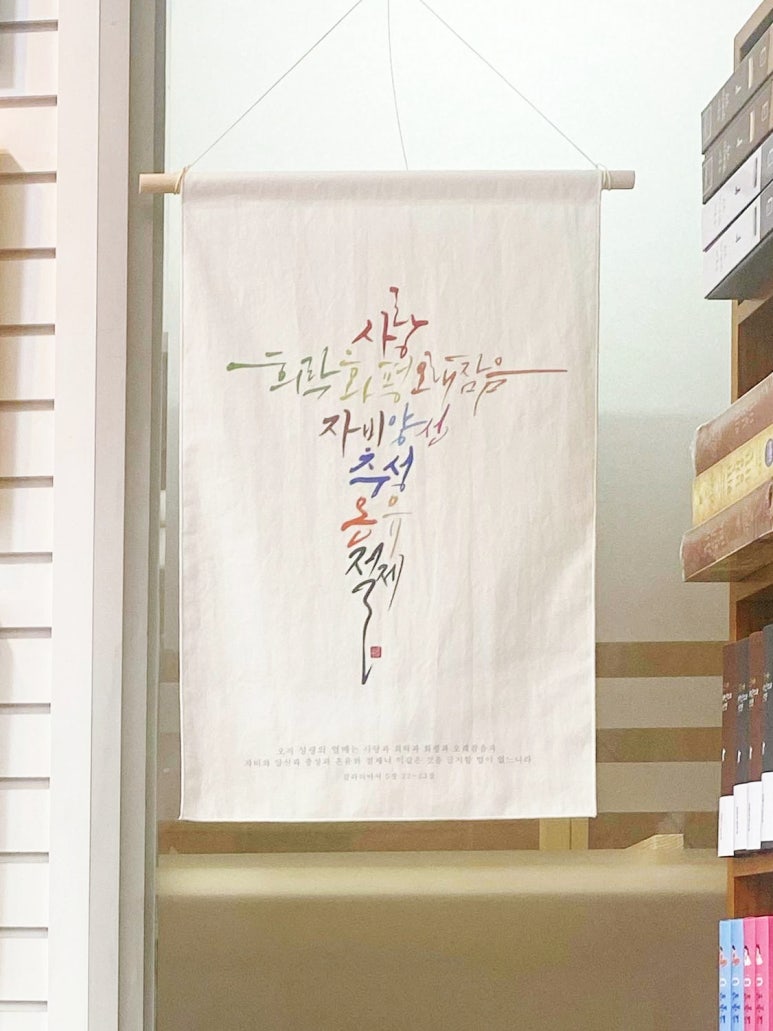 사랑
희락 화평 오래참음
자비 양선
충성
온유
절제
오직 성령의 열매는 사랑과 희락과 화평과 오래참음과
자비와 양선과 충성과 온유와 절제니 이같은 것을 금지할 법이 없느니라
갈라디아서 5장 22-23절